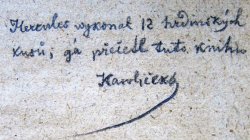 Hercules vykonal 12 hrdinských
kusů; já přečetl tuto knihu
Havlíček